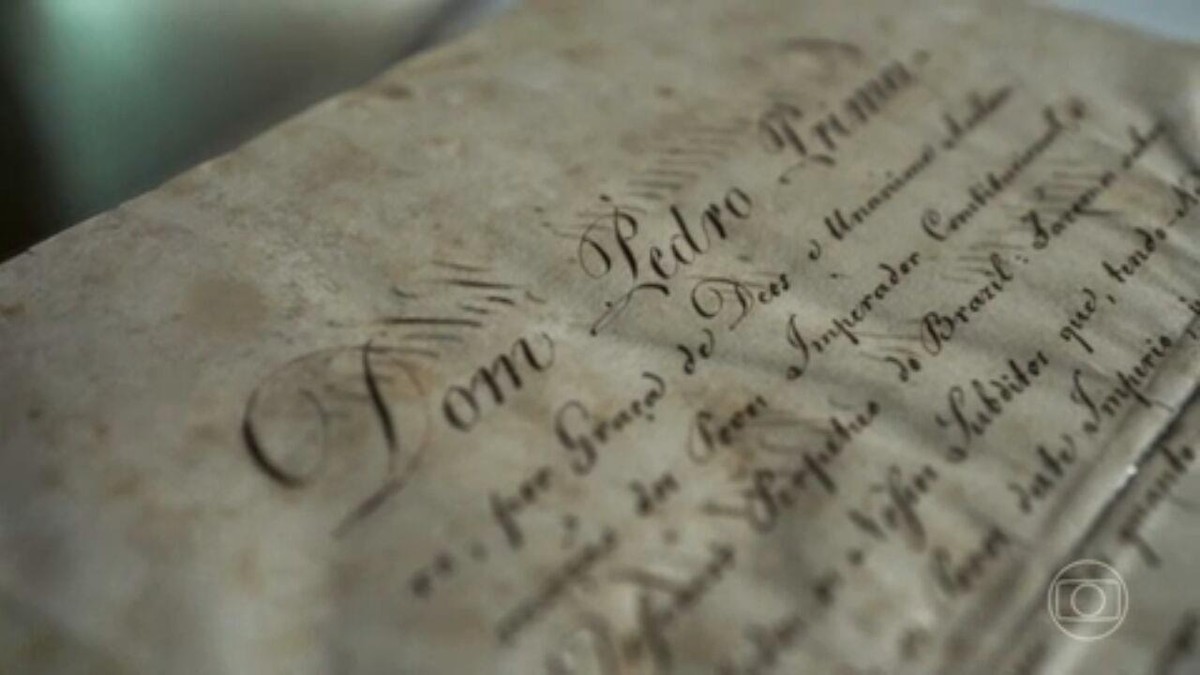 Dom Pedro Primei-
ro, por Graça de Deos e Unanime
mação dos Povos Imperador Constitucional e
Defensor Perpetuo do Brazil: Fazemos saber
Nossos Subditos que, tendo
Povos deste Imperio
quanto